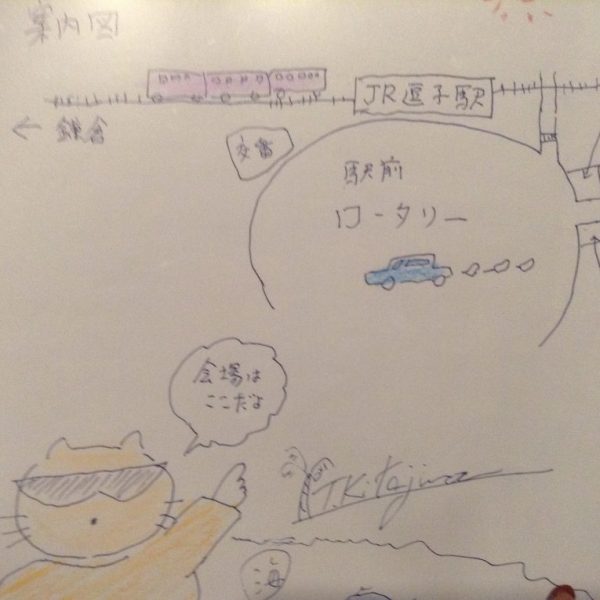 案内図
JR逗子駅
← 鎌倉
交番
駅前
ロータリー
会場は
ここだよ
T.Kitajima
海